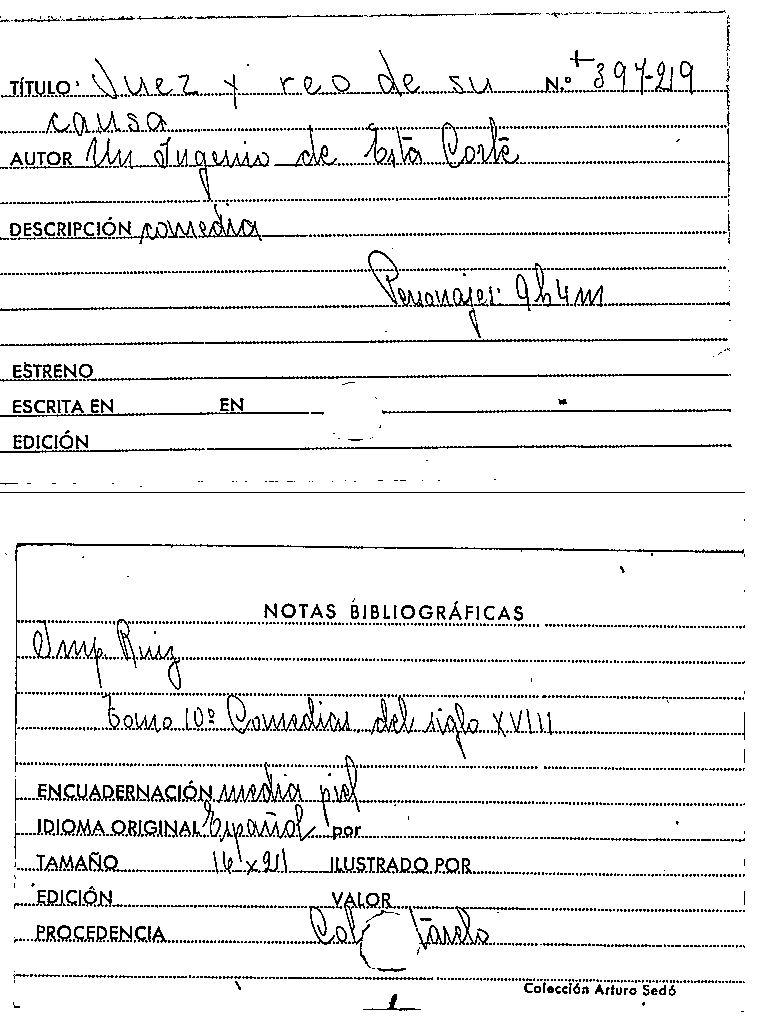 TÍTULO: Juez y reo de su N.º +397-219
causa
AUTOR Un Ingenio de Esta Corte
DESCRIPCIÓN comedia
Personajes: 9h4m
ESTRENO
ESCRITA EN EN
EDICIÓN
NOTAS BIBLIOGRÁFICAS
Imp. Ruiz
tomo 10º Comedias del siglo XVIII
ENCUADERNACIÓN media piel
IDIOMA ORIGINAL Español por
TAMAÑO ILUSTRADO POR
EDICIÓN VALOR
PROCEDENCIA Col
Colección Arturo Sedó